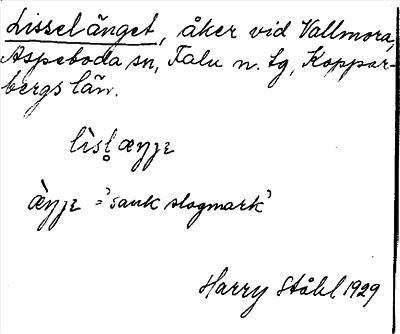 Lisselänget, åker vid Vallmora,
Aspeboda sn, Falu n. tg, Koppar-
bergs län.
lìsl̥æŋjɛ
æ̀ŋjɛ = 'sank slogmark'
Harry Ståhl 1929